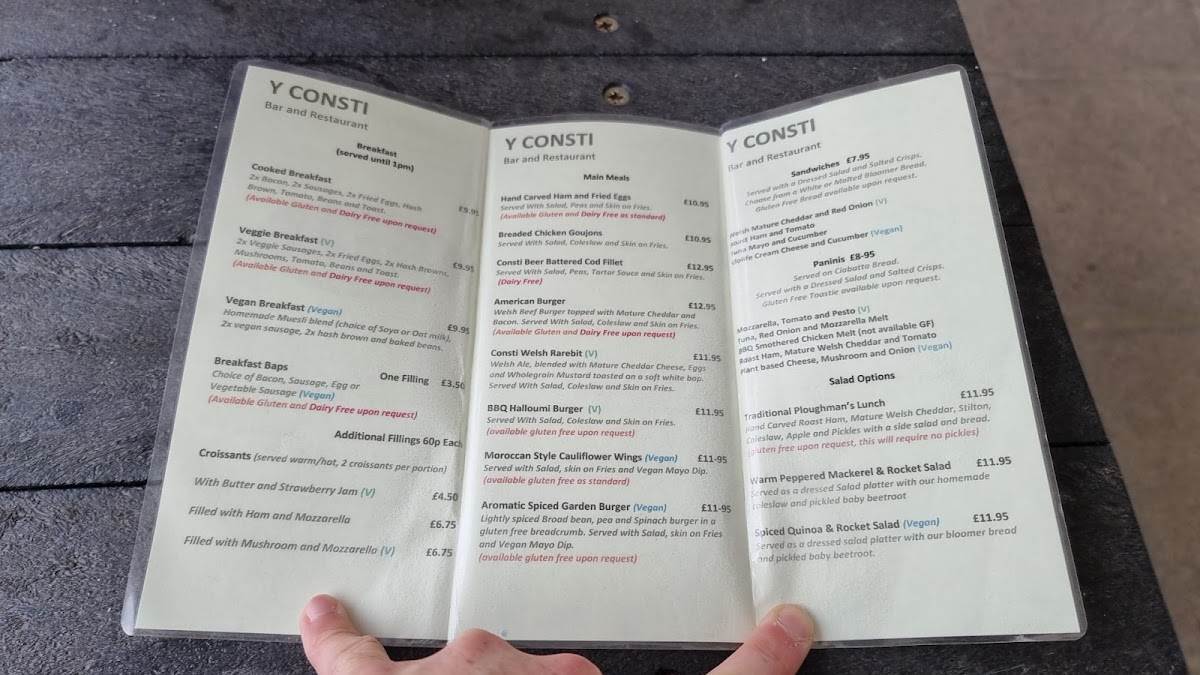 Y CONSTI
Bar and Restaurant
Breakfast
(served until 1pm)
Cooked Breakfast
2x Bacon, 2x Sausages, 2x Fried Eggs, Hash
Brown, Tomato, Beans and Toast. £9.95
(Available Gluten and Dairy Free upon request)
Veggie Breakfast (V)
2x Veggie Sausages, 2x Fried Eggs, 2x Hash Browns, £9.95
Mushrooms, Tomato, Beans and Toast.
(Available Gluten and Dairy Free upon request)
Vegan Breakfast (Vegan)
Homemade Muesli blend (choice of Soya or Oat milk), £9.95
2x vegan sausage, 2x hash brown and baked beans.
Breakfast Baps One Filling £3.50
Choice of Bacon, Sausage, Egg or
Vegetable Sausage (Vegan)
(Available Gluten and Dairy Free upon request)
Additional Fillings 60p Each
Croissants (served warm/hot, 2 croissants per portion)
With Butter and Strawberry Jam (V) £4.50
Filled with Ham and Mozzarella £6.75
Filled with Mushroom and Mozzarella (V) £6.75
Y CONSTI
Bar and Restaurant
Main Meals
Hand Carved Ham and Fried Eggs £10.95
Served With Salad, Peas and Skin on Fries.
(Available Gluten and Dairy Free as standard)
Breaded Chicken Goujons £10.95
Served With Salad, Coleslaw and Skin on Fries.
Consti Beer Battered Cod Fillet £12.95
Served With Salad, Peas, Tartar Sauce and Skin on Fries.
(Dairy Free)
American Burger £12.95
Welsh Beef Burger topped with Mature Cheddar and
Bacon. Served With Salad, Coleslaw and Skin on Fries.
(Available Gluten and Dairy Free upon request)
Consti Welsh Rarebit (V) £11.95
Welsh Ale, blended with Mature Cheddar Cheese, Eggs
and Wholegrain Mustard toasted on a soft white bap.
Served With Salad, Coleslaw and Skin on Fries.
BBQ Halloumi Burger (V) £11.95
Served With Salad, Coleslaw and Skin on Fries.
(available gluten free upon request)
Moroccan Style Cauliflower Wings (Vegan) £11-95
Served with Salad, skin on Fries and Vegan Mayo Dip.
(available gluten free as standard)
Aromatic Spiced Garden Burger (Vegan) £11-95
Lightly spiced Broad bean, pea and Spinach burger in a
gluten free breadcrumb. Served with Salad, skin on Fries
and Vegan Mayo Dip.
(available gluten free upon request)
Y CONSTI
Bar and Restaurant
Sandwiches £7.95
Served with a Dressed Salad and Salted Crisps.
Choose from a White or Malted Bloomer Bread.
Gluten Free Bread available upon request.
Welsh Mature Cheddar and Red Onion (V)
Roast Ham and Tomato
Tuna Mayo and Cucumber
Cream Cheese and Cucumber (Vegan)
Paninis £8-95
Served on Ciabatta Bread.
Served with a Dressed Salad and Salted Crisps.
Gluten Free Toastie available upon request.
Mozzarella, Tomato and Pesto (V)
Tuna, Red Onion and Mozzarella Melt
BBQ Smothered Chicken Melt (not available GF)
Roast Ham, Mature Welsh Cheddar and Tomato
Plant based Cheese, Mushroom and Onion (Vegan)
Salad Options
Traditional Ploughman's Lunch £11.95
Hand Carved Roast Ham, Mature Welsh Cheddar, Stilton,
Coleslaw, Apple and Pickles with a side salad and bread.
(gluten free upon request, this will require no pickles)
Warm Peppered Mackerel & Rocket Salad £11.95
Served as a dressed Salad platter with our homemade
coleslaw and pickled baby beetroot
Spiced Quinoa & Rocket Salad (Vegan) £11.95
Served as a dressed salad platter with our bloomer bread
and pickled baby beetroot.